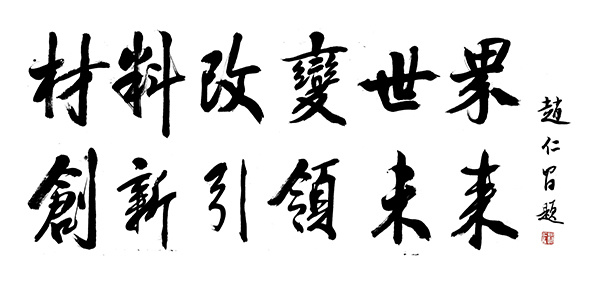 材料改變世界
創新引領未来
趙仁題